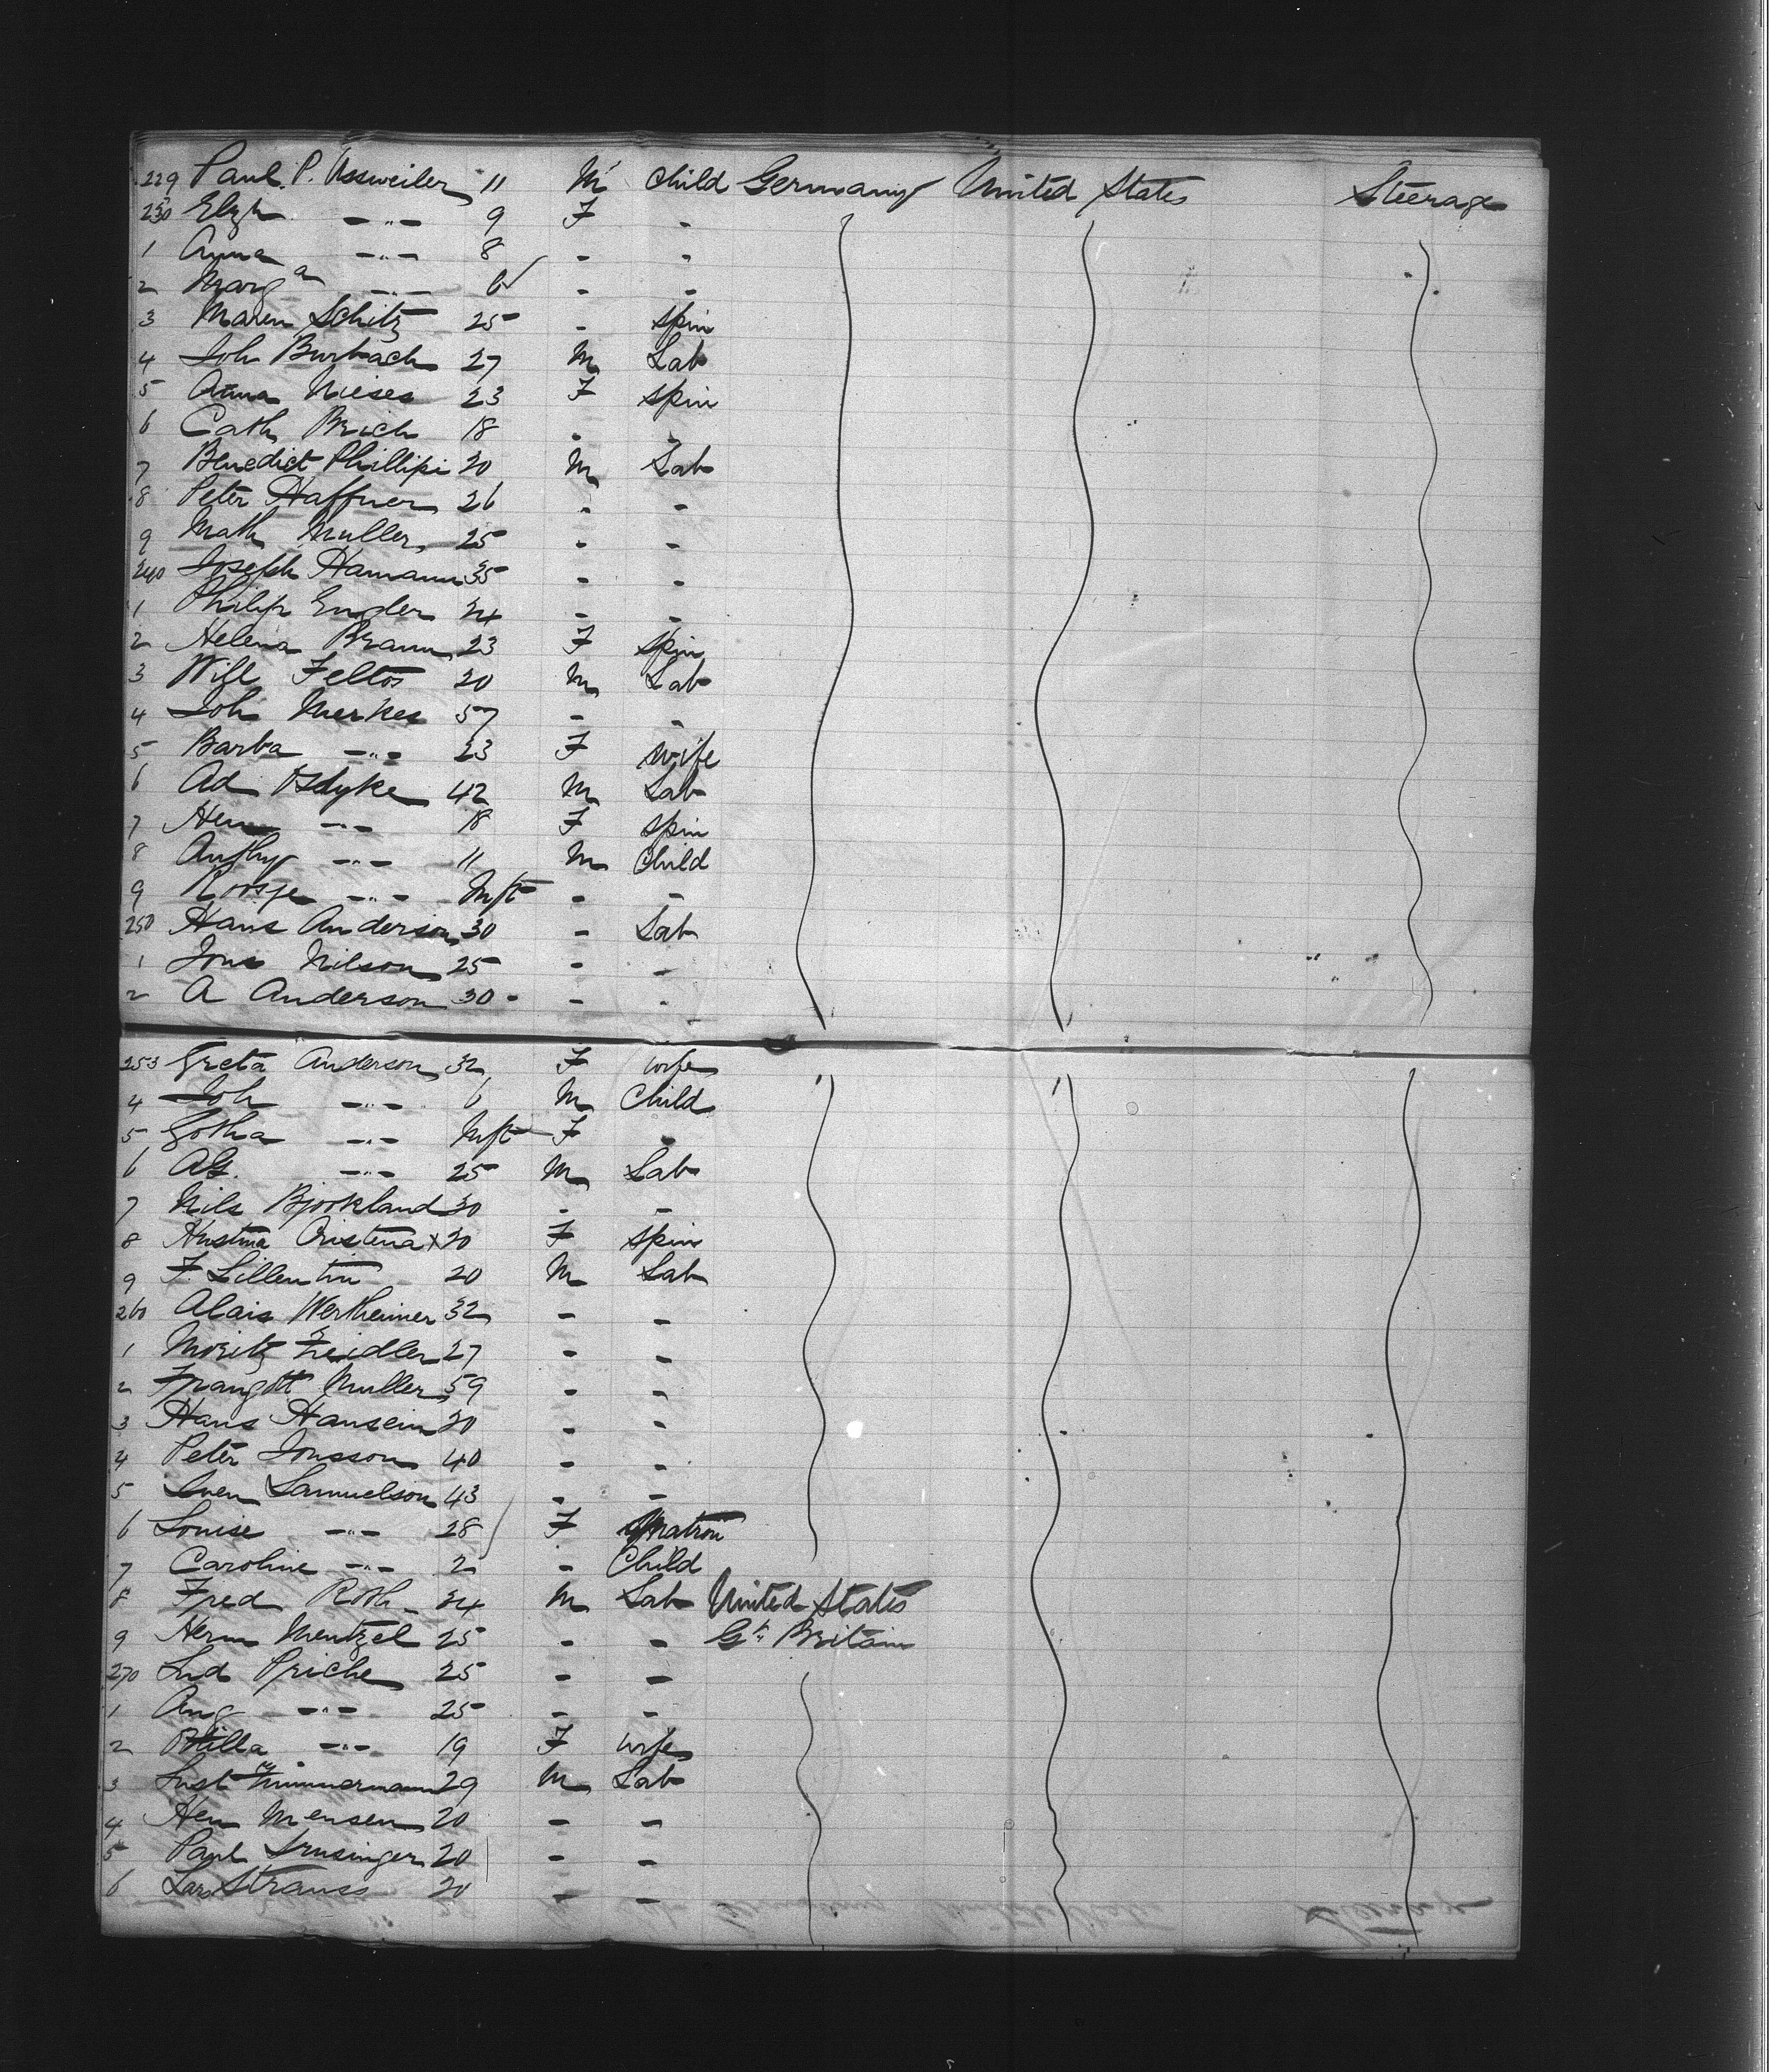 229 Paul. P. Ussweiler 11 M child Germany United States Steerage
230 Elzh -"- 9 F -
1 Anna -"- 8 - -
2 Marga -"- 6 - -
3 Maren Schitz 25 - spin
4 Joh Burbach 27 M Lab
5 Anna Nieses 23 F spin
6 Cath Brich 18 - -
7 Benedict Phillipi 20 M Lab
8 Peter Haffner 26 - -
9 Math Muller 25 - -
240 Joseph Hamann 35 - -
1 Philip Engler 24 - -
2 Helena Braun 23 F spin
3 Will Feltos 20 M Lab
4 Joh Merkes 57 - -
5 Barba -"- 23 F wife
6 Ad Opdyke 42 M Lab
7 Hen -"- 18 F spin
8 Anthy -"- 11 M Child
9 Roosje -"- Inft - -
250 Hans Anderson 30 - Lab
1 Jons Nilson 25 - -
2 A Anderson 30 - -
253 Greta Anderson 32 F wife
4 Joh -"- 6 M Child
5 Gotha -"- Inft F -
6 -"- 25 M Lab
7 Nils Bjorkland 30 - -
8 Cristina x 20 F spin
9 F. Lillentin 20 M Lab
260 Alois Wertheimer 32 - -
1 Moritz Zeidler 27 - -
2 Traugott Muller 59 - -
3 Hans Hansein 20 - -
4 Peter Jonsson 40 - -
5 Sven Samuelson 43 - -
6 Louise -"- 28 F Matron
7 Caroline -"- 2 - Child
8 Fred Roth 24 M Lab United States
9 Herm Mentzel 25 - - Gt. Britain
270 Lud Priche 25 - -
1 Aug -"- 25 - -
2 Otilla -"- 19 F wife
3 Gust Zimmermann 29 M Lab
4 Hen Mensen 20 - -
5 Paul 20 - -
6 Lars Strauss 20 - -